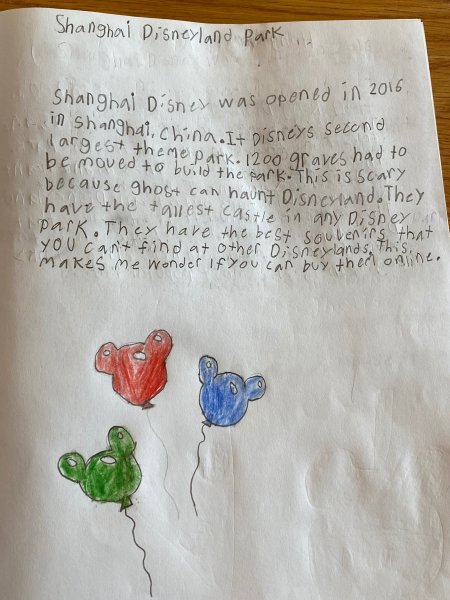 Shanghai Disneyland Park
Shanghai Disney was opened in 2016
in Shanghai, China. It Disneys second
largest theme park. 1200 graves had to
be moved to build the park. This is scary
because ghost can haunt Disneyland. They
have the tallest castle in any Disney
park. They have the best souvenirs that
you can't find at other Disneylands. This
makes me wonder if you can buy them online.